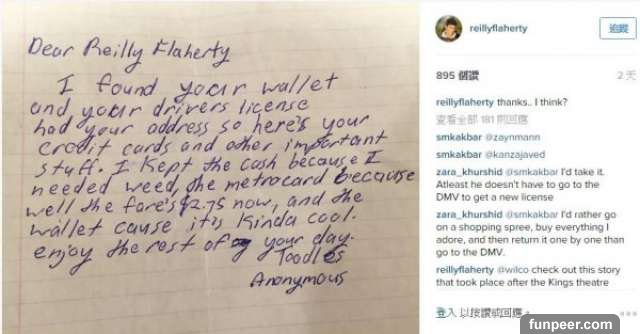 Dear Reilly Flaherty
I found your wallet
and your drivers license
had your address so here's your
credit cards and other important
stuff. I kept the cash because I
needed weed, the metrocard because
well the fare's $2.75 now, and the
wallet cause it's kinda cool.
enjoy the rest of your day.
Toodles
Anonymous
reillyflaherty
追蹤
895 個讚
2天
reillyflaherty thanks.. I think?
查看全部 181 則回應
smkakbar @zaynmann
smkakbar @kanzajaved
zara_khurshid @smkakbar I'd take it.
Atleast he doesn't have to go to the
DMV to get a new license
zara_khurshid @smkakbar I'd rather go
on a shopping spree, buy everything I
adore, and then return it one by one than
go to the DMV.
reillyflaherty @wilco check out this story
that took place after the Kings theatre
登入 以按讚或回應。
funpeer.com